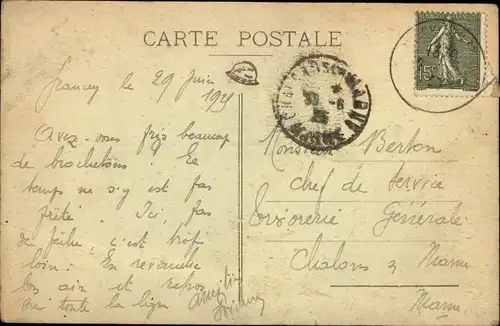 CARTE POSTALE
le 29 Juin
Avez-vous pris beaucoup
de brochetons ? Le
temps ne s'y est pas
prêté. Ici, pas
de pêche, c'est trop
loin. En revanche
bon air et repos
sur toute la ligne
15c
Monsieur Berton
Chef de Service
Trésorerie Générale
Chalons s Marne
Marne